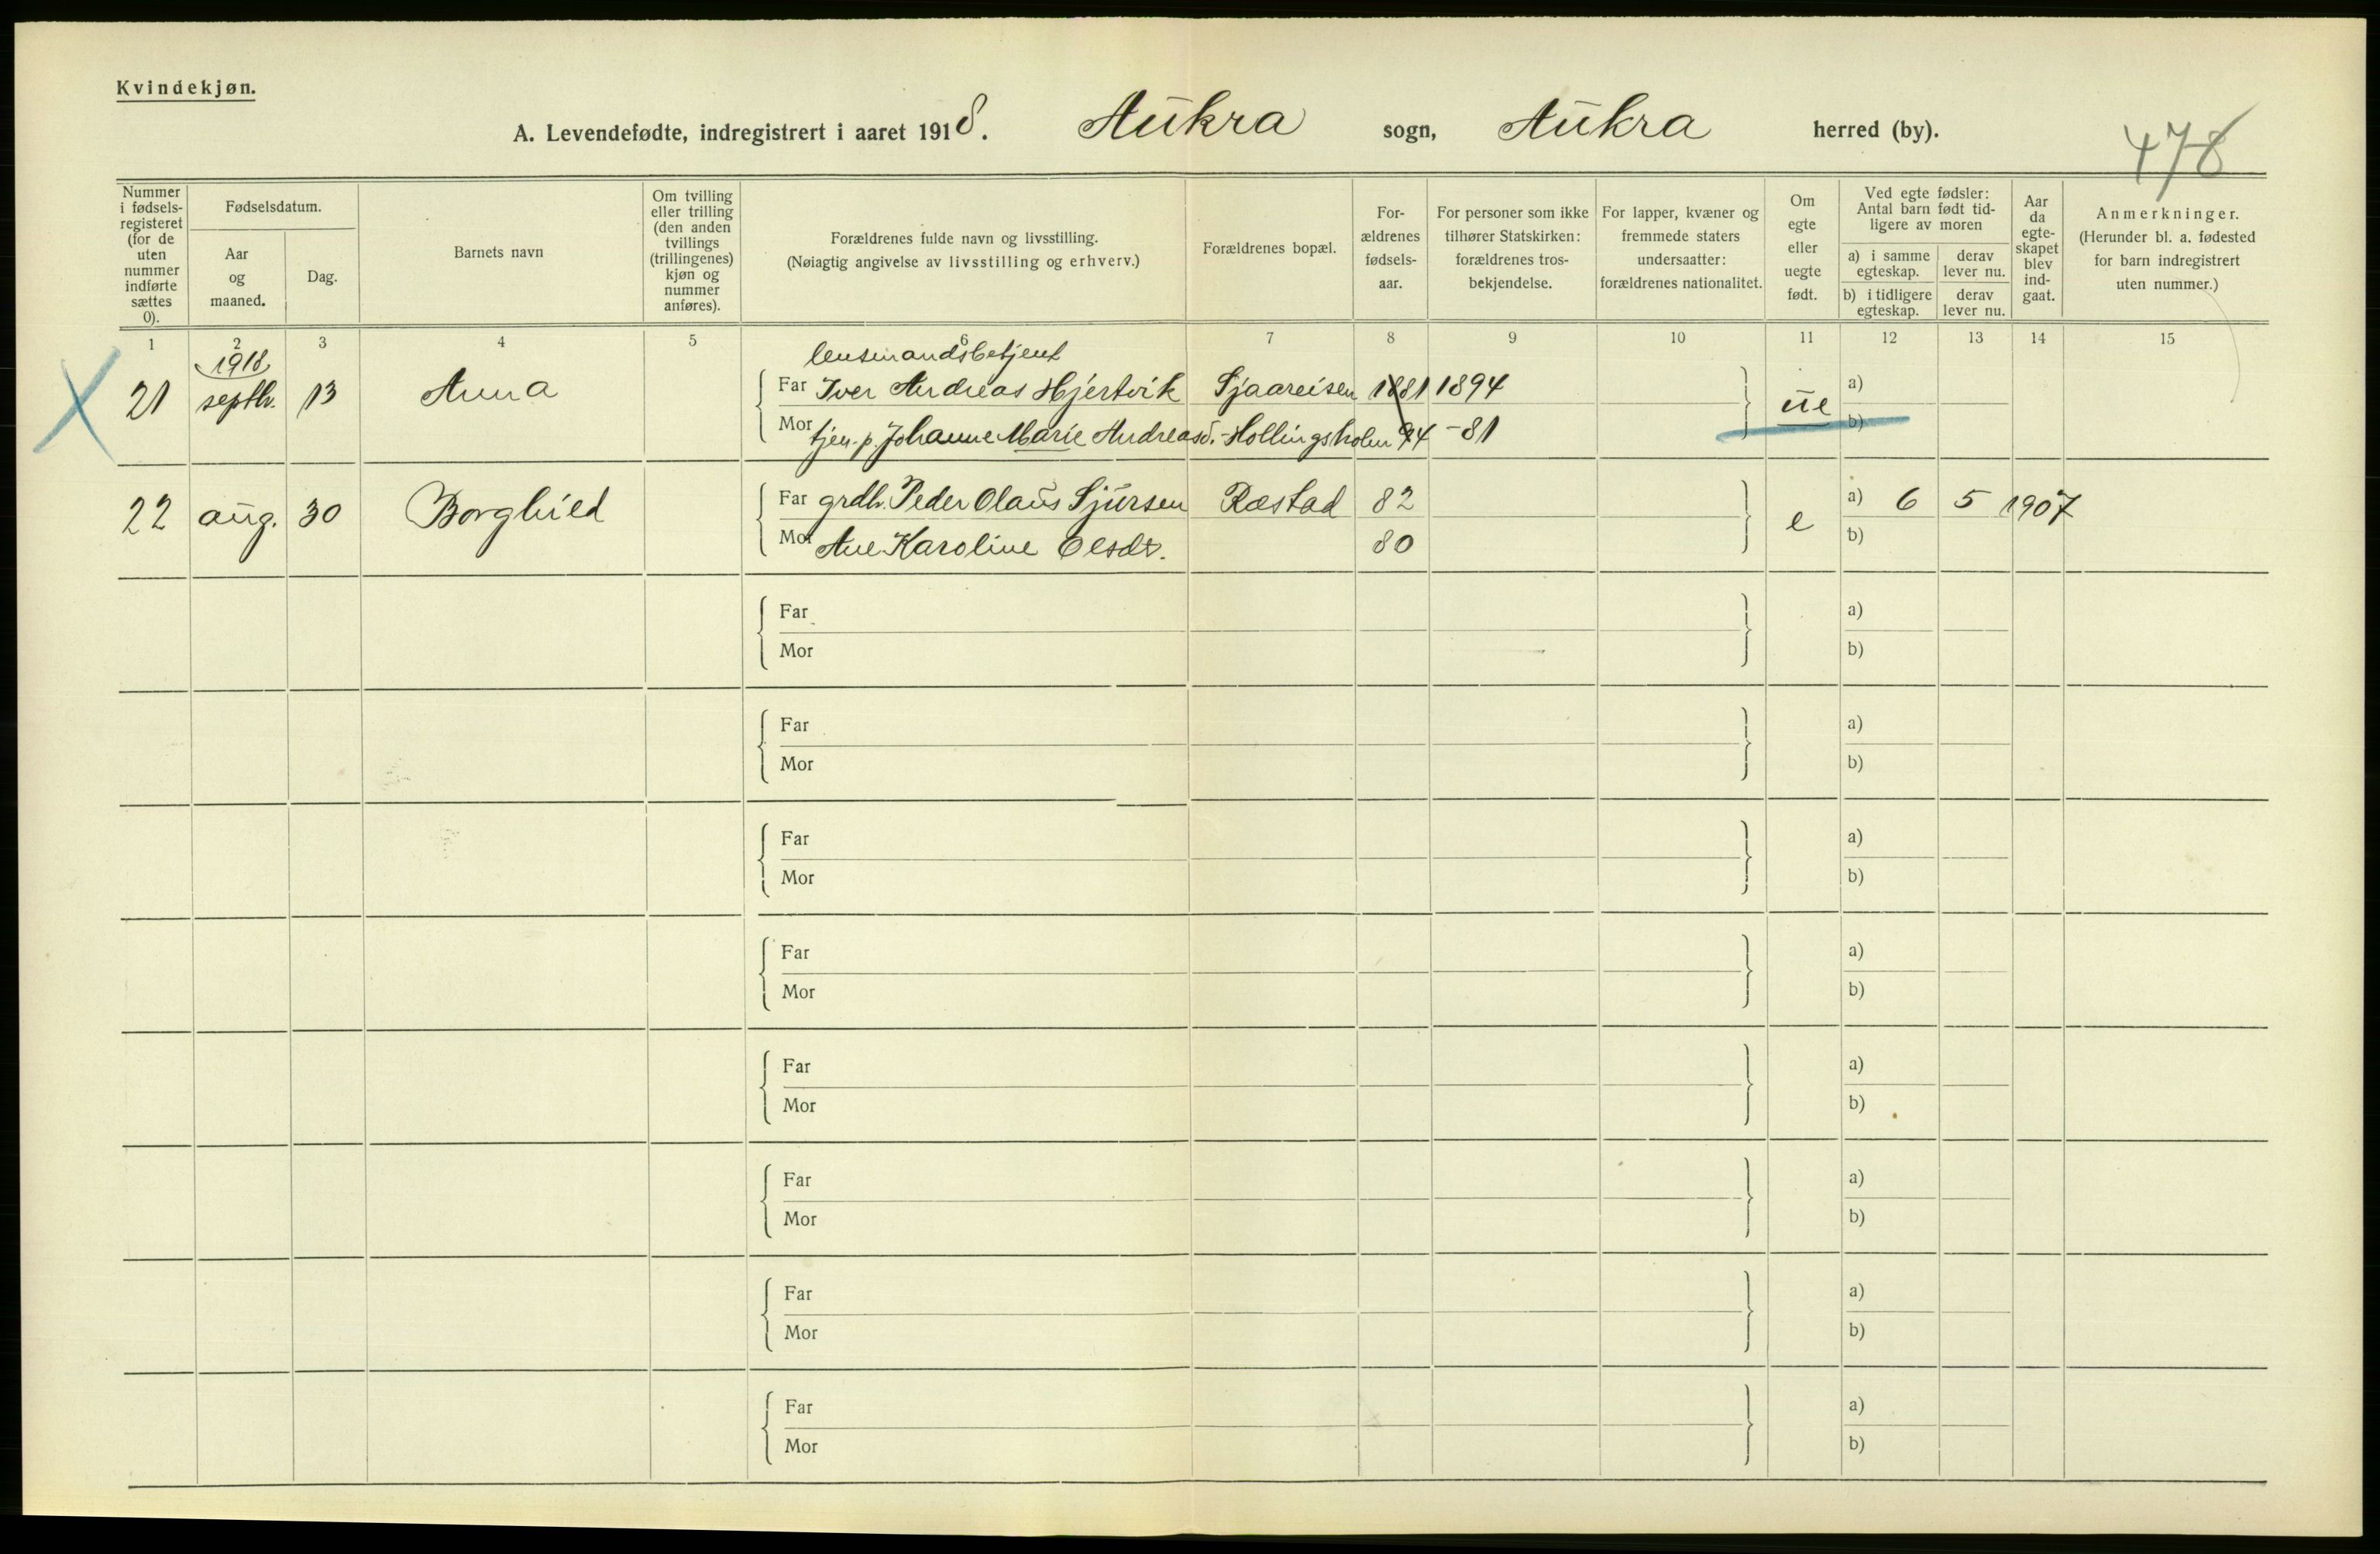 Kvindekjøn.
A. Levendefødte, indregistrert i aaret 1918. Aukra sogn, Aukra herred (by).
478
Nummer i fødsels-registeret (for de uten nummer indførte sættes 0).
Fødselsdatum.
Aar og maaned.
Dag.
Barnets navn
Om tvilling eller trilling (den anden tvillings (trillingenes) kjøn og nummer anføres).
Forældrenes fulde navn og livsstilling.
(Nøiagtig angivelse av livsstilling og erhverv.)
Forældrenes bopæl.
For-ældrenes fødsels-aar.
For personer som ikke tilhører Statskirken: forældrenes tros-bekjendelse.
For lapper, kvæner og fremmede staters undersaatter: forældrenes nationalitet.
Om egte eller uegte født.
Ved egte fødsler: Antal barn født tid-ligere av moren
a) i samme egteskap.
derav lever nu.
b) i tidligere egteskap.
derav lever nu.
Aar da egte-skapet blev ind-gaat.
Anmerkninger.
(Herunder bl. a. fødested for barn indregistrert uten nummer.)
1 2 3 4 5 6 7 8 9 10 11 12 13 14 15
1918 lensmandsbetjent
21 septbr. 13 Anna Far Iver Andreas Hjertvik Sjaareisen 1881 1894 ue a)
Mor tjen. p. Johanne Marie Andreasd. Hollingsholm 94 -81 b)
22 aug. 30 Borghild Far grdbr. Peder Olaus Sjursen Ræstad 82 e a) 6 5 1907
Mor Ane Karoline Olsdt. 80 b)
Far a)
Mor b)
Far a)
Mor b)
Far a)
Mor b)
Far a)
Mor b)
Far a)
Mor b)
Far a)
Mor b)
Far a)
Mor b)
Far a)
Mor b)